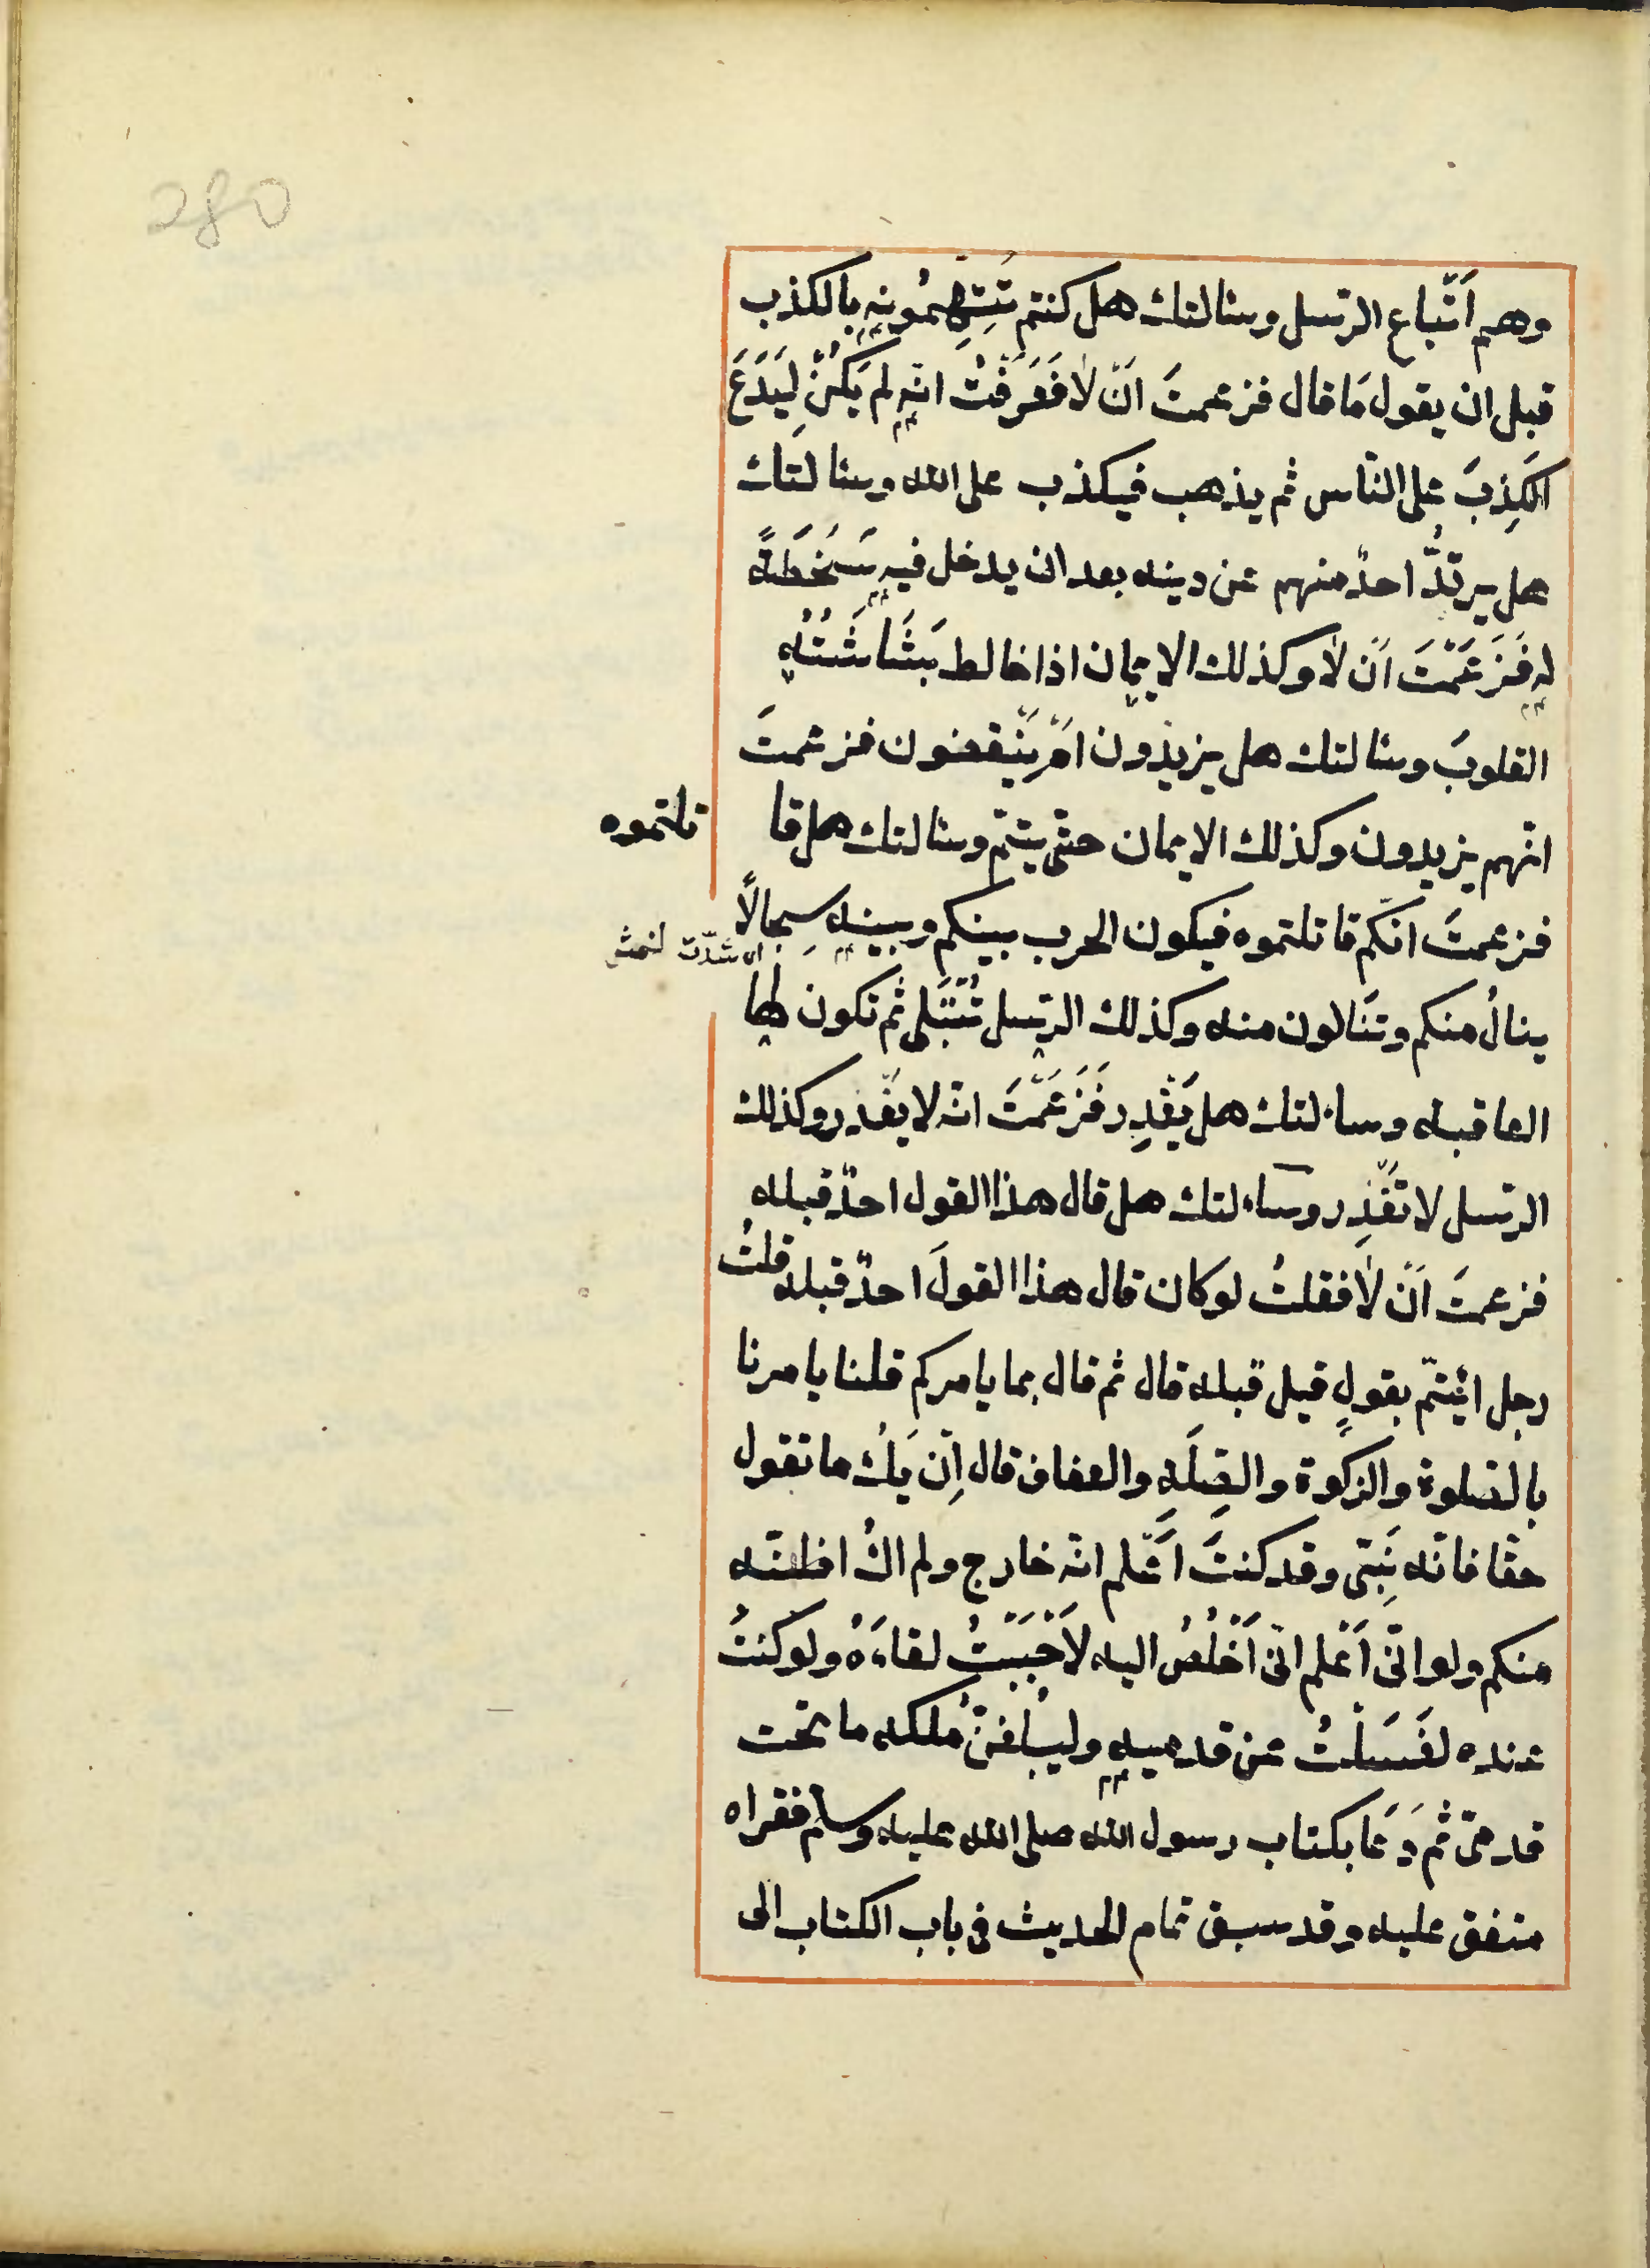 280
وهم اَتْباع الرّسل وسئالتك هل كنتم تَتَّهِمُونهِ بالكذب
قبل ان يقول مَا قال فزعمتَ اَنْ لاٰ فَعَرَفْتُ انّهِ لم يَكُنْ لِيَدَعَ
الكَذِبَ على النّاس ثم يذهب فيكذب على الله وسئالتك
هل يرتدُّ احدٌ منهم عن دينه بعد ان يدخل فيهِ سَخْطَةً
لهِ فَزَعَمْتَ اَنْ لاٰ وكذلك الايمان اذا خالط بَشَاشَتُهُِ
القلوبَ وسئالتك هل يزيدُون اَمْ يَنْقصون فزعمتَ
انّهم يزيدون وكذلك الايمان حتّى يتمّ وسئالتك هل قا
تلتموه
فزعمتَ انّكم قاتلتموه فيكون الحرب بينكم وبينهِ سِجالاً
ينالُ منكم وتَنَالون منه وكذلك الرّسل تُبْتَلى ثم تكون لها
العاقبه وساءلتك هل يَغْدِر فَزَعَمْتَ انّه لا يَغْدر وكذلك
الرّسل لا تَغْدِر وساءلتك هل قال هذا القول احدٌ قبله
فزعمتَ اَنْ لاٰ فقلتُ لو كان قال هذا القولَ احدٌ قبله قلتُ
رجل ائتمّ بقولٍ قيل قبله قال ثم قال بما يامركم قلنا يامرنا
بالصلوة والزكوة والصِلَهِ والعفاف قال اِنْ يَكُ ما تقول
حقّا فانّه نَبِيّ وقد كنتَ اَعْلم انّه خارج ولم اكُ اظنّه
منكم ولو انّى اَعْلم انّى اَخْلُصُ اليه لاَحْبَبْتُ لقاءَهُ ولو كنتُ
عنده لغَسَلْتُ عن قدميهِ وليبلُغنّ مُلكه ما تحت
قدمىّ ثُم دَعَا بكتاب رسول الله صلى الله عليه وسلم فقراه
متفق عليه وقد سبق تمام الحديث فى باب الكتاب الى